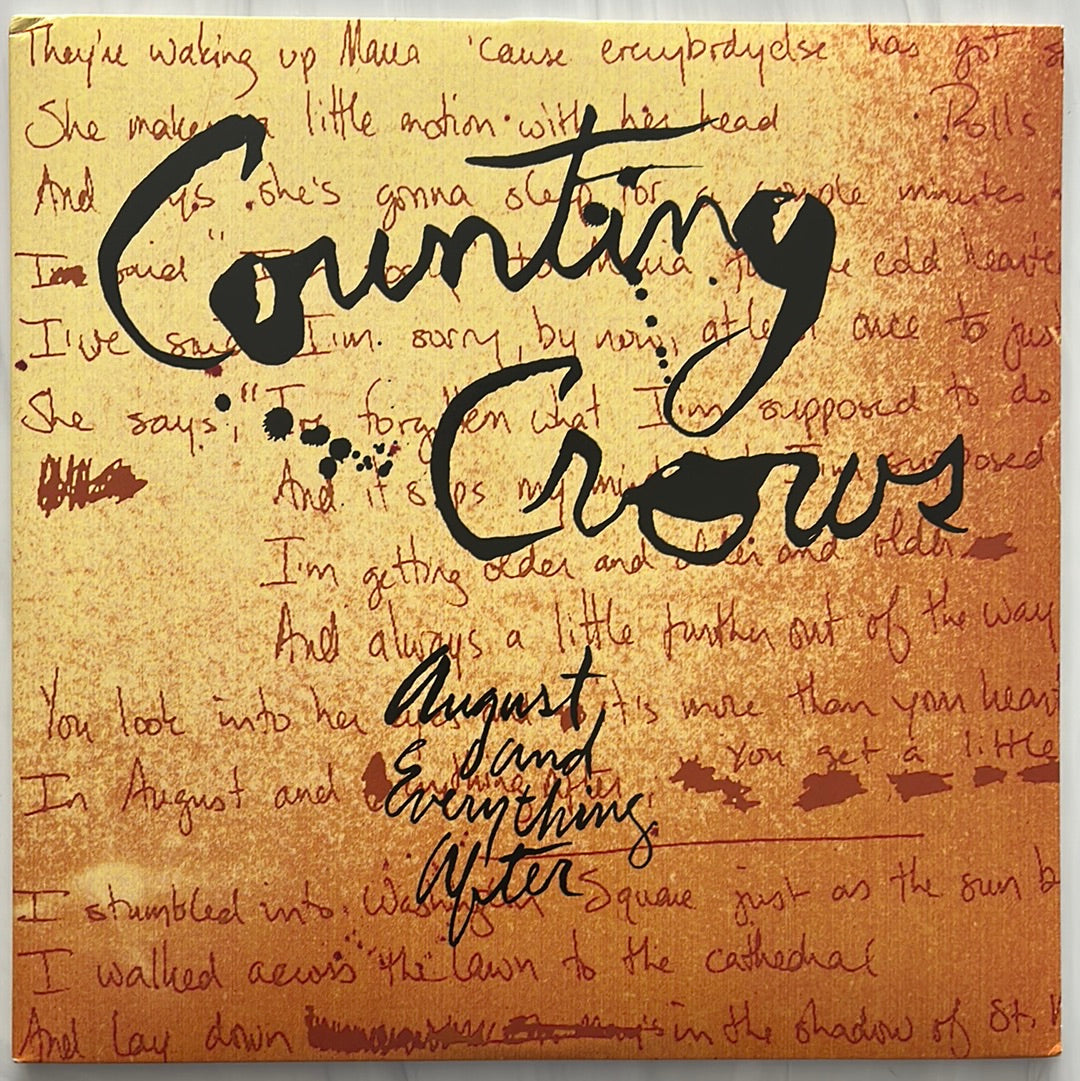 They're waking up Maria 'cause everybodyelse has got
She makes a little motion with her head
Rolls
And says she's gonna sleep for a couple minutes
Counting
I said "I'm to Maria cold hearte
I've said I'm sorry, by now, at least once to jus
She says, "I've forgotten what I'm supposed to do
Crows
And it slips my mind
I'm getting older and older and older
And always a little further out of the way
August
You look into her it's more than your hear
and
You get a little
In August and everything after,
Everything
After
I stumbled into Washington Square just as the sun b
I walked across the lawn to the cathedral
And lay down in the shadow of St.